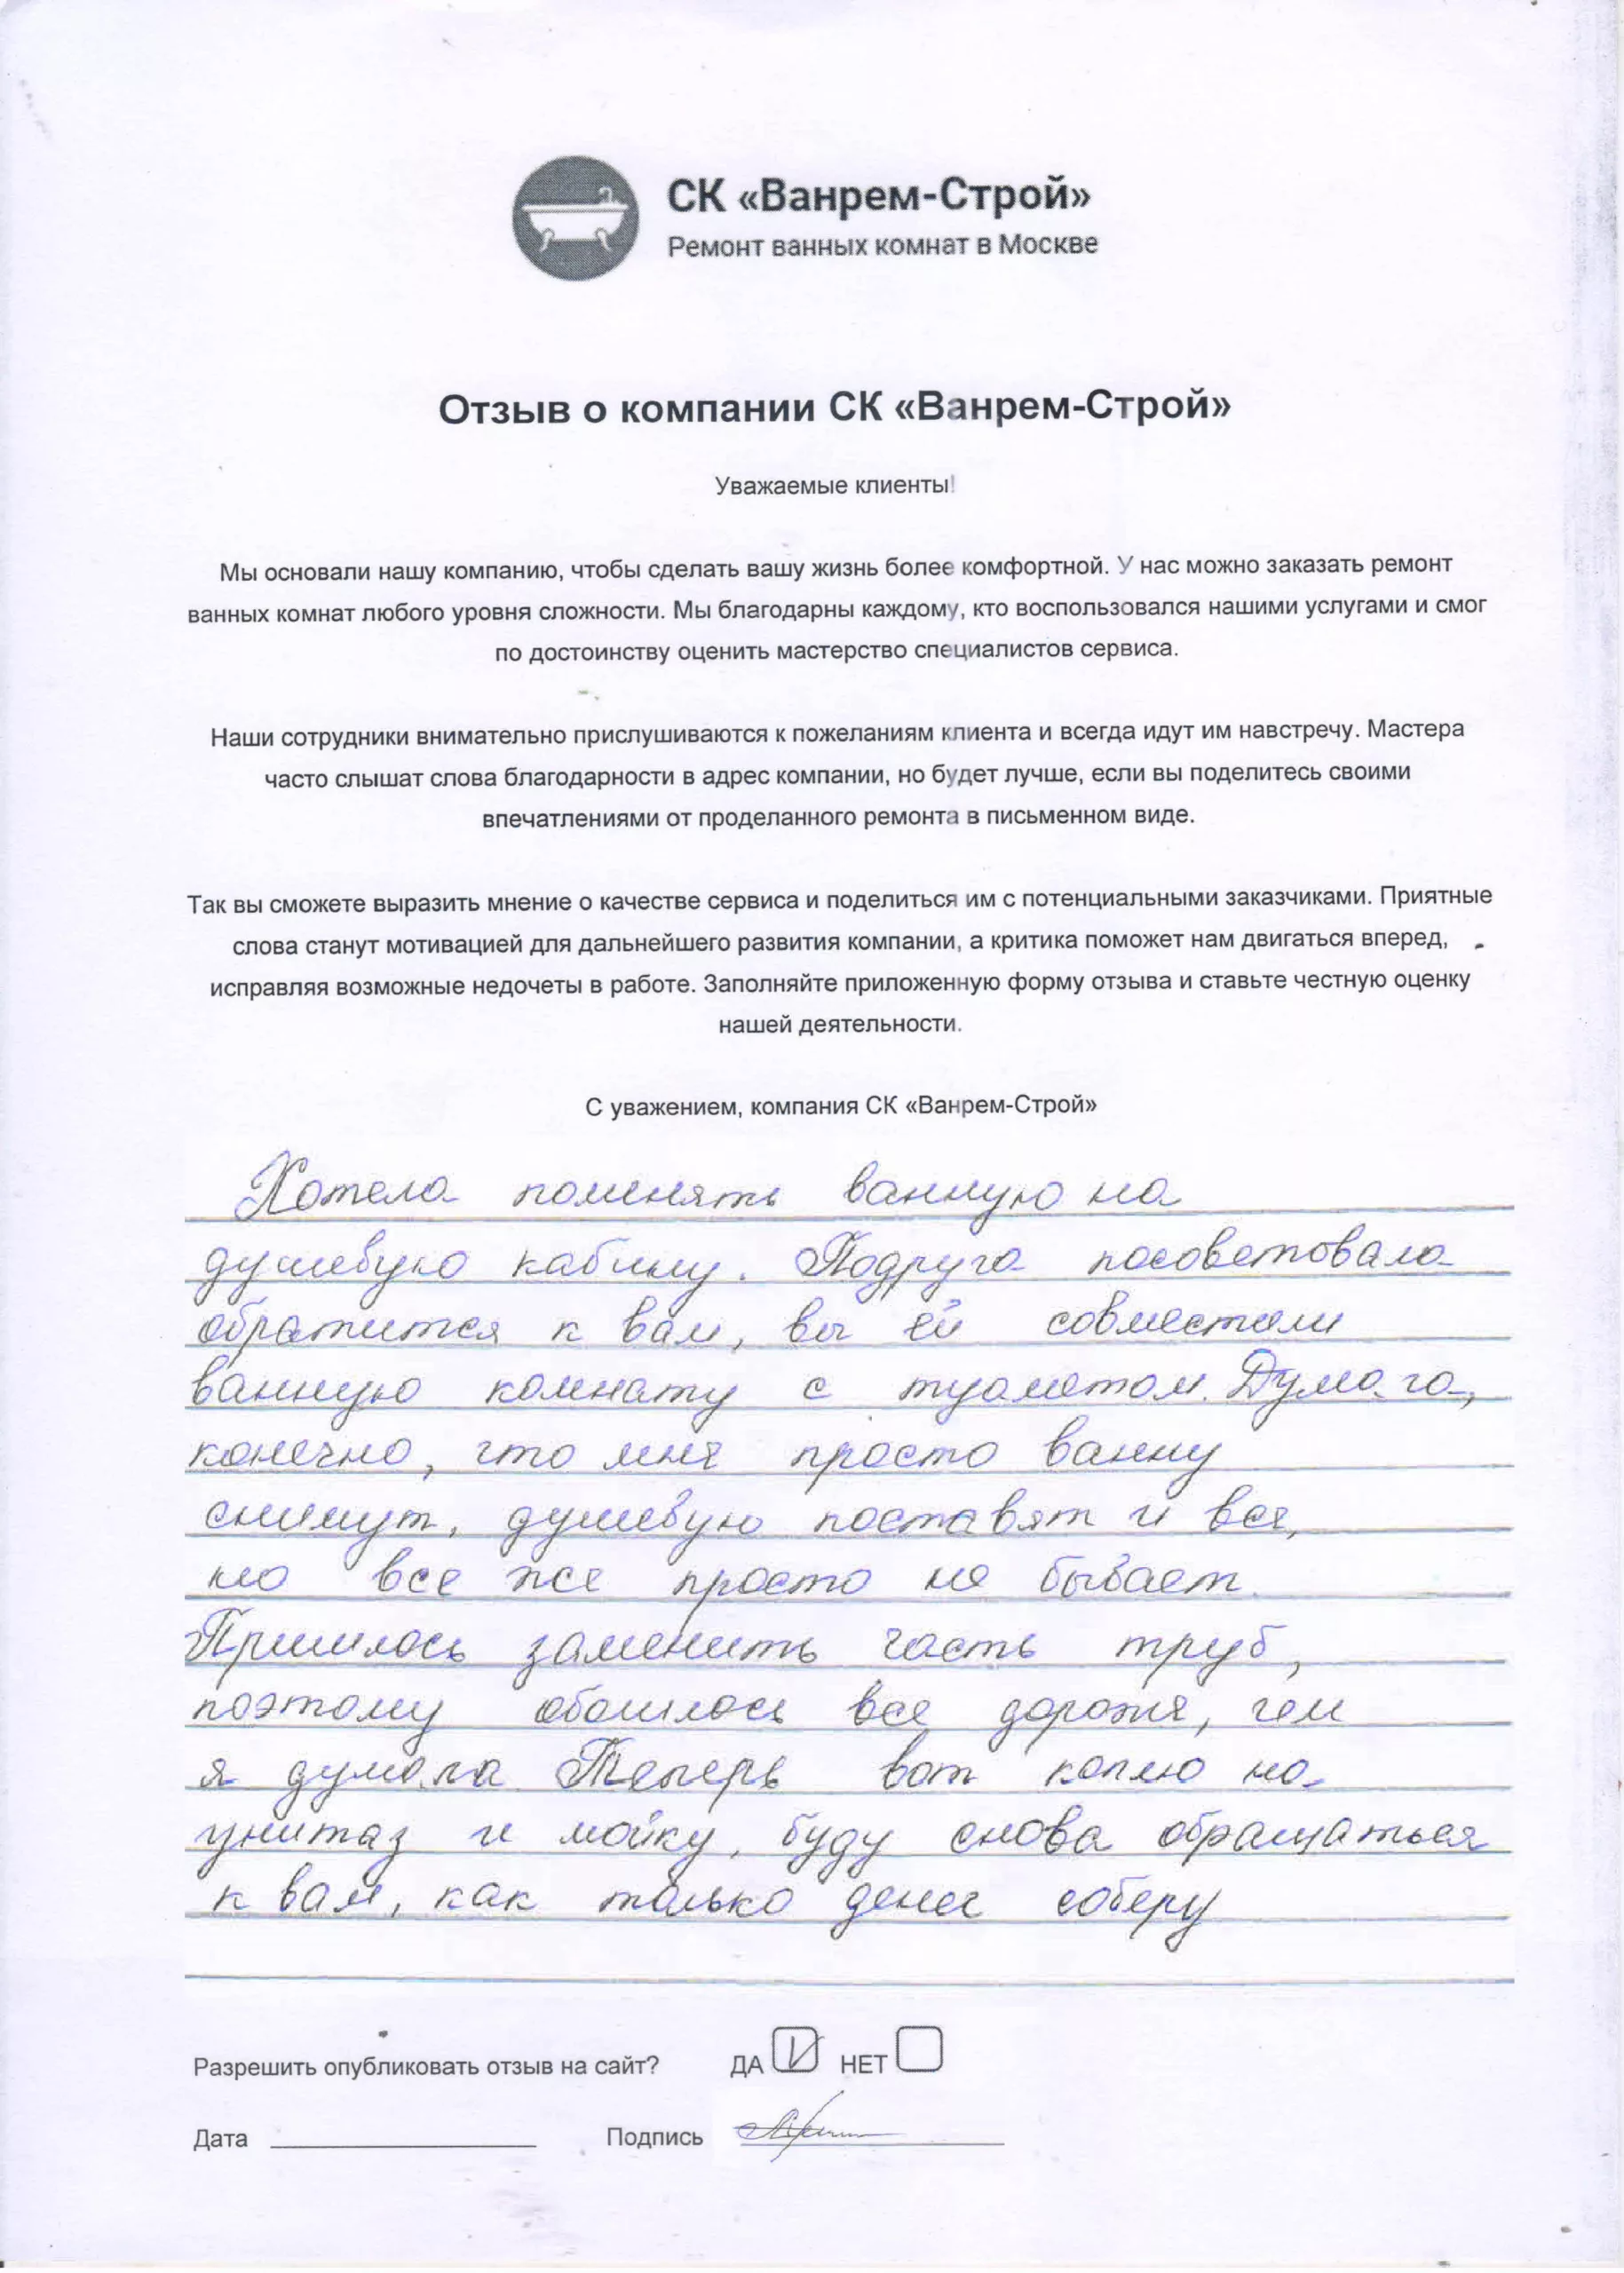 СК «Ванрем-Строй»
Ремонт ванных комнат в Москве
Отзыв о компании СК «Ванрем-Строй»
Уважаемые клиенты!
Мы основали нашу компанию, чтобы сделать вашу жизнь более комфортной. У нас можно заказать ремонт
ванных комнат любого уровня сложности. Мы благодарны каждому, кто воспользовался нашими услугами и смог
по достоинству оценить мастерство специалистов сервиса.
Наши сотрудники внимательно прислушиваются к пожеланиям клиента и всегда идут им навстречу. Мастера
часто слышат слова благодарности в адрес компании, но будет лучше, если вы поделитесь своими
впечатлениями от проделанного ремонта в письменном виде.
Так вы сможете выразить мнение о качестве сервиса и поделиться им с потенциальными заказчиками. Приятные
слова станут мотивацией для дальнейшего развития компании, а критика поможет нам двигаться вперед,
исправляя возможные недочеты в работе. Заполняйте приложенную форму отзыва и ставьте честную оценку
нашей деятельности.
С уважением, компания СК «Ванрем-Строй»
Хотела поменять ванную на
душевую кабину. Подруга посоветовала
обратится к вам, вы ей совместили
ванную комнату с туалетом. Думала,
конечно, что мне просто ванну
снимут, душевую поставят и все,
но все же просто не бывает.
Пришлось заменить часть труб,
поэтому обошлось все дороже, чем
я думала. Теперь вот коплю на
унитаз и мойку, буду снова обращаться
к вам, как только денег соберу
Разрешить опубликовать отзыв на сайт? ДА НЕТ
Дата Подпись